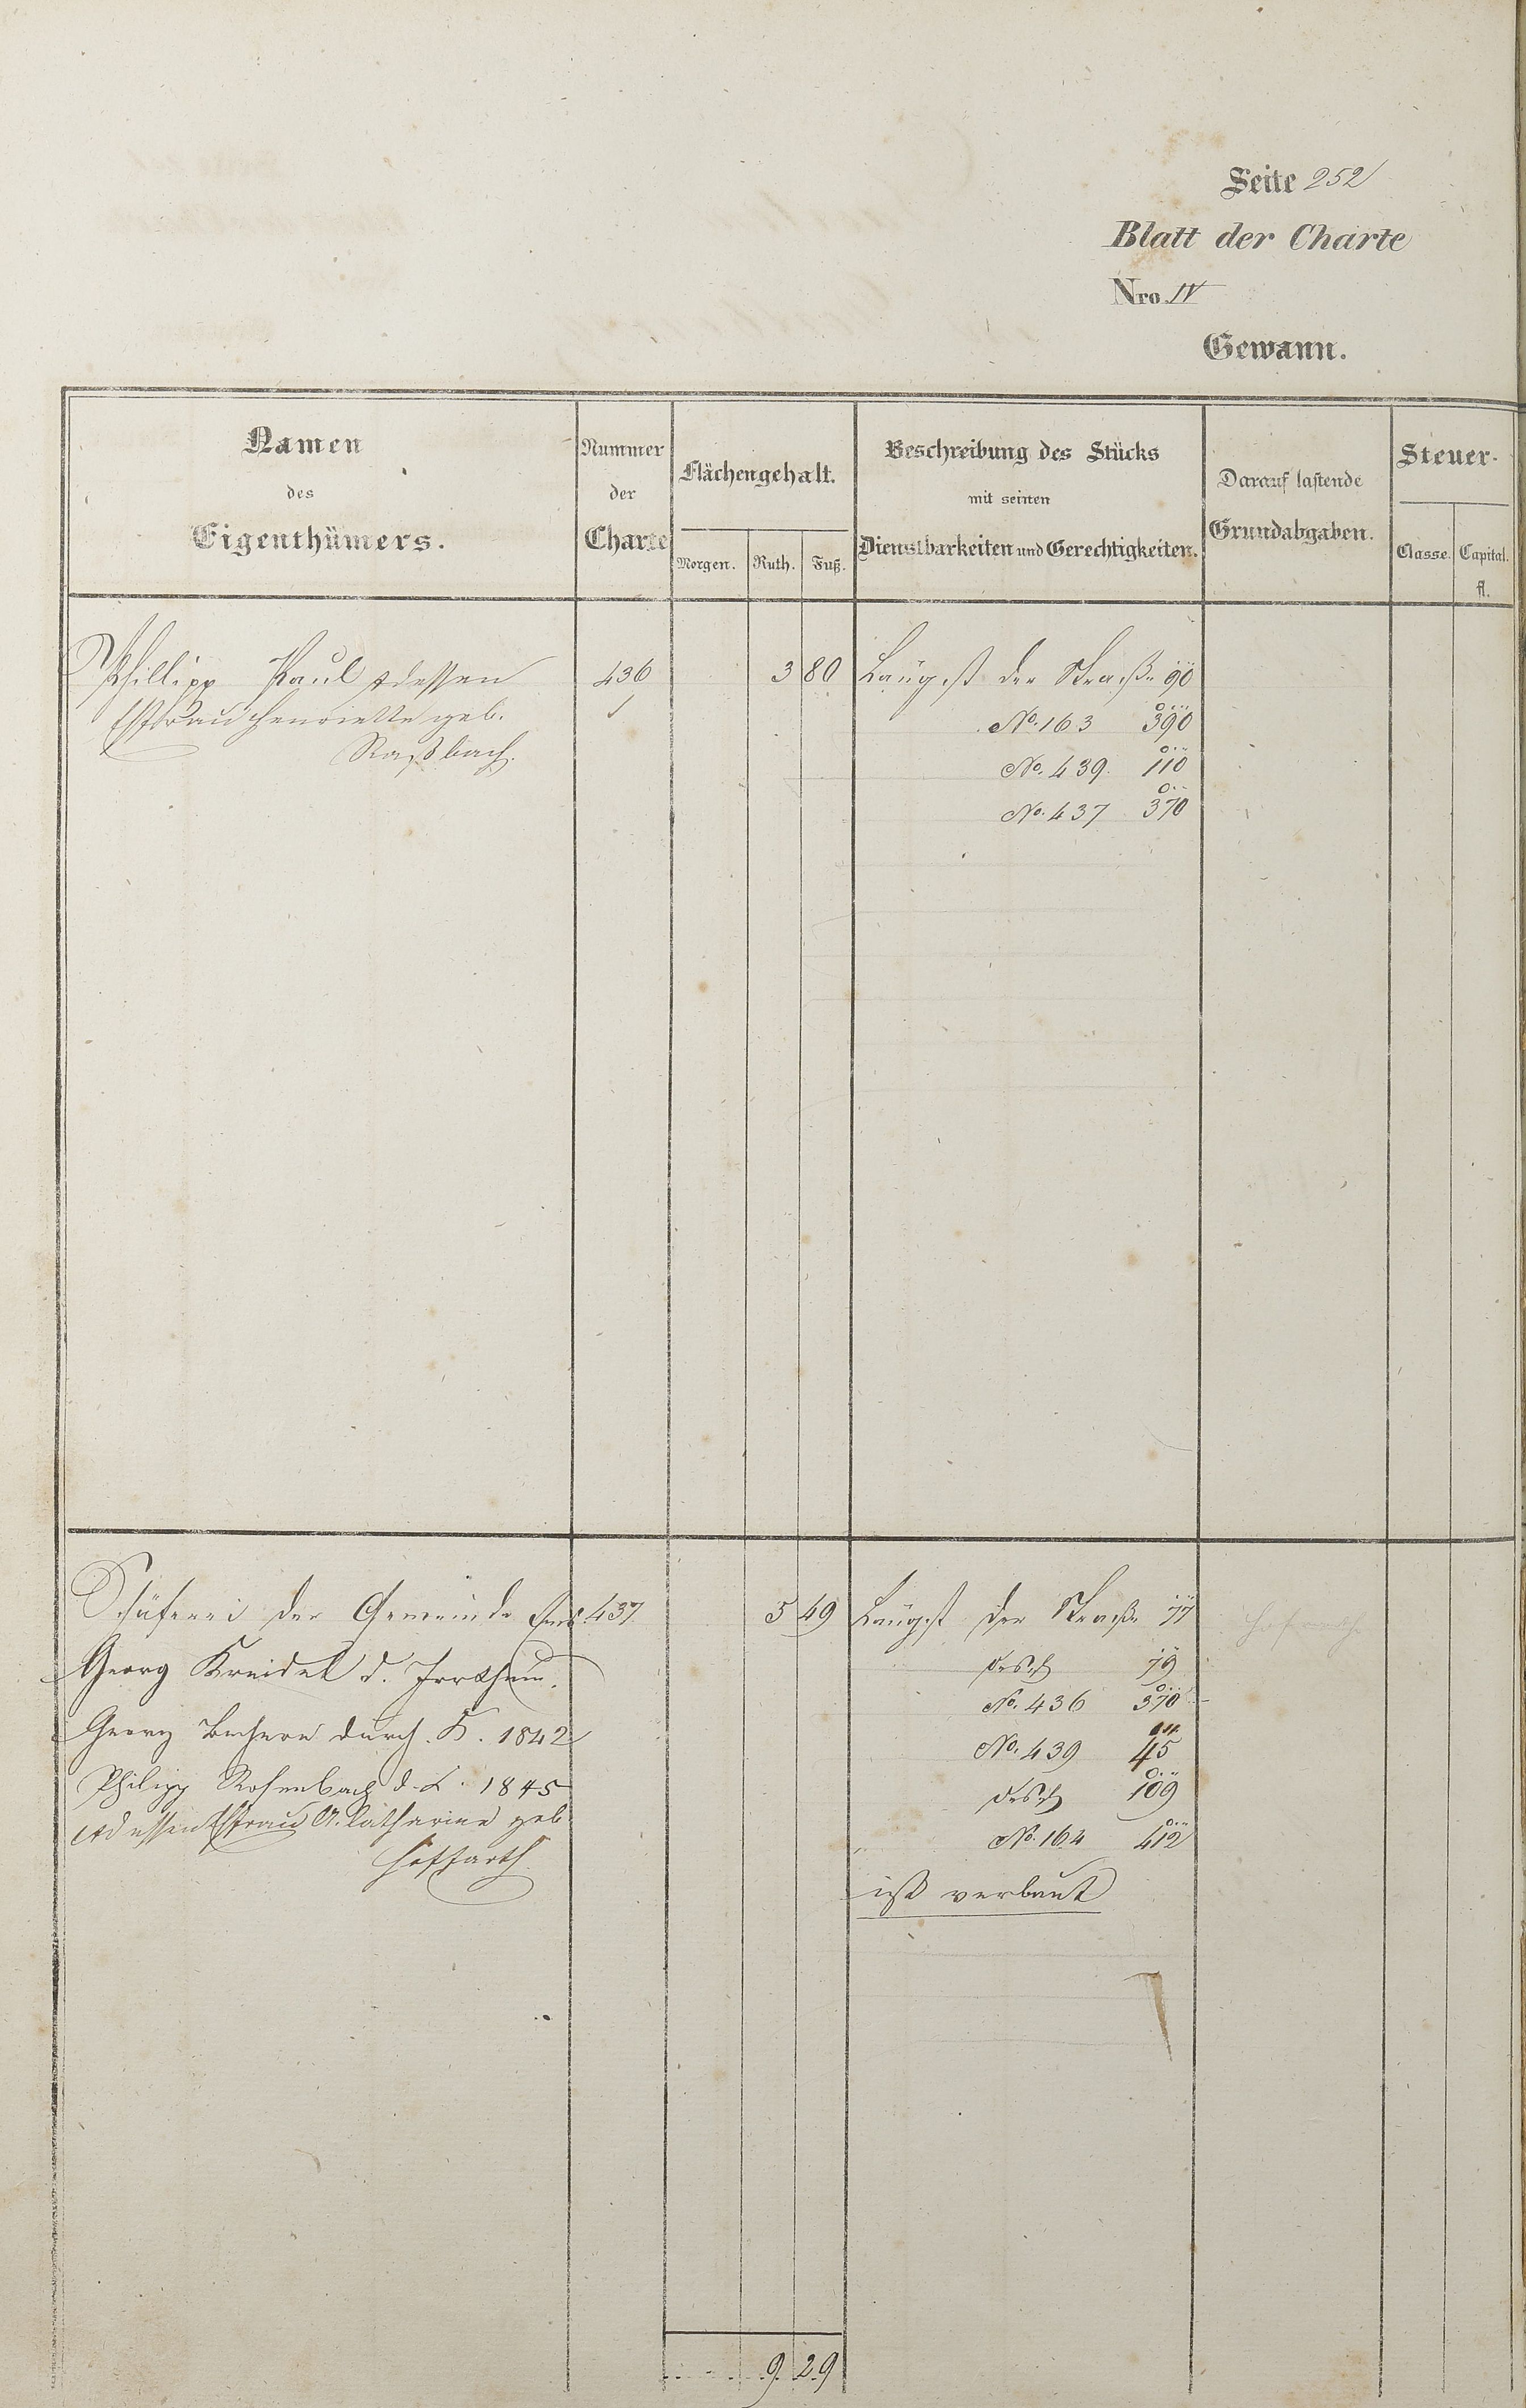 Seite 252
Blatt der Charte
Nro IV
Gewann.
Namen
des
Eigenthümers.
Nummer
der
Charte
Flächengehalt.
Morgen. Ruth. Fuß.
Beschreibung des Stücks
mit seinen
Dienstbarkeiten und Gerechtigkeiten.
Darauf lastende
Grundabgaben.
Steuer-
Classe. Capital.
fl.
Phillipp Paul & dessen 436 3 80 Läugst der Straße 90
Ehfrau Henriette geb. No. 163 390
Raßbach. No. 439. 110
No. 437 370
Schäferei der Gemeinde 437 5 49 Läugst der Straße 77
Georg Kreidel d. Irrthum. desgl 79
No. 436 370
Georg durch K. 1842 No. 439 45
Philipp Rosenbach d. K. 1845 desgl 109
& dessen Ehfrau A. Catharine geb No. 164 412
Hoffarth
ist verbaut
9. 29